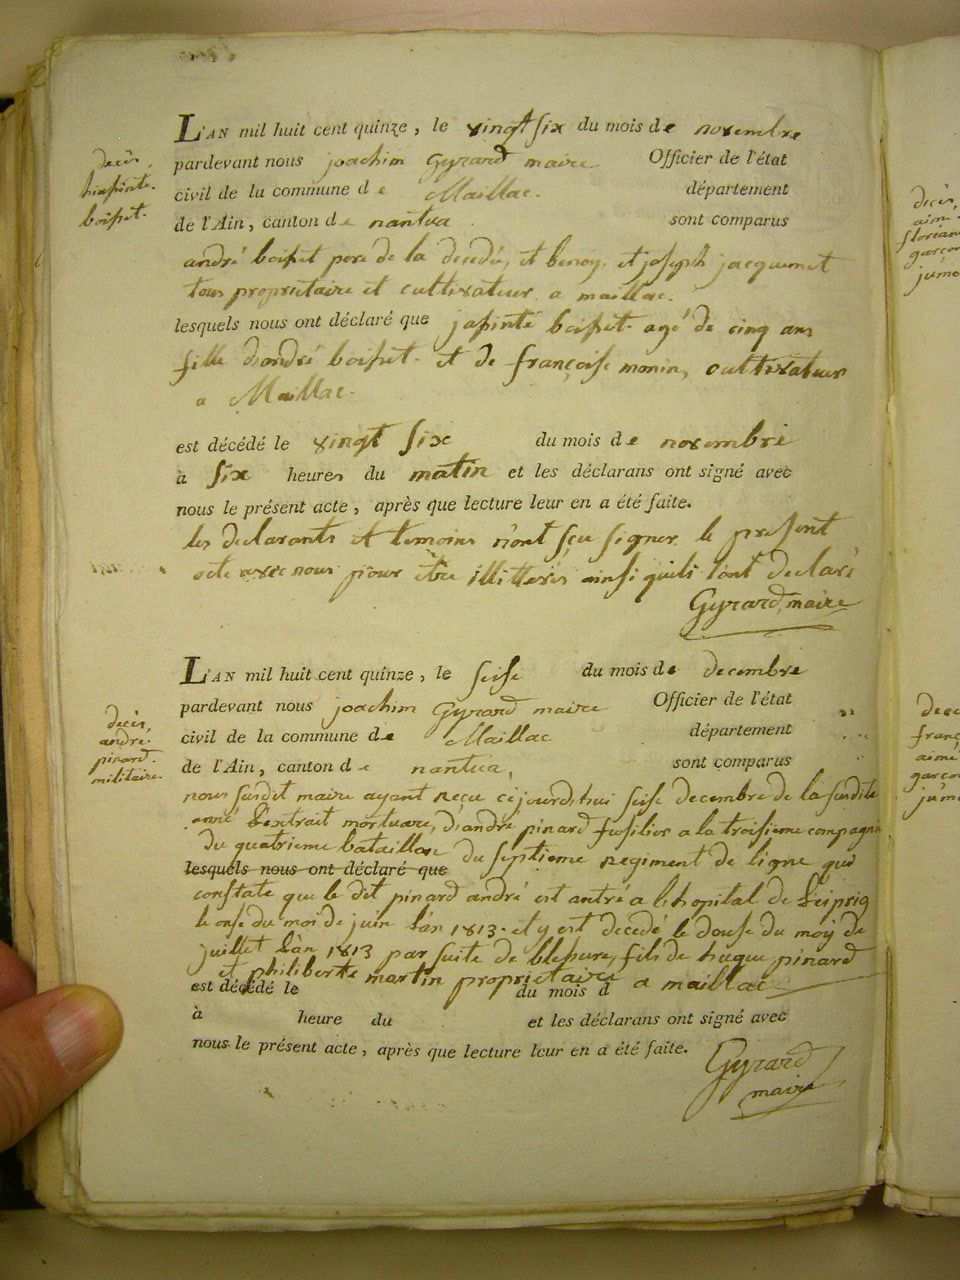 L'AN mil huit cent quinze, le vingt six du mois de novembre
pardevant nous joachim Gyrard maire Officier de l'état
civil de la commune de Maillac. département
de l'Ain, canton de nantua sont comparus
andré boisset pere de la decedée, et benoy, et joseph jacquemet
tous proprietaire et cultivateur a maillac.
lesquels nous ont déclaré que japinte boisset. agé de cinq ans
fille d'andré boisset. et de françoise monin, cultivateur
a Maillac.
est décédé le vingt six du mois de novembre
à six heures du matin et les déclarans ont signé avec
nous le présent acte, après que lecture leur en a été faite.
les declarants et temoins n'ont sçu signer le present
acte avec nous pour etre illitterés ainsi qu'ils l'ont declaré
Gyrard, maire
decès,
hiapinte.
boisset.
L'AN mil huit cent quinze, le seise du mois de decembre
pardevant nous joachim Gyrard maire Officier de l'état
civil de la commune de Maillac département
de l'Ain, canton de nantua, sont comparus
nous susdit maire ayant reçu cejourd'hui seise decembre de la susdite
anné l'extrait mortuare, d'andré pinard fusilier a la troisieme compagnie
du quatrieme bataillon du septieme regiment de ligne qui
lesquels nous ont déclaré que
constate que le dit pinard andré est antré a l'hopital de Leipsig
le onse du moi de juin l'an 1813. et y est decedé le douse du moy de
juillet l'an 1813 par suite de blessure, fils de hugue pinard
et philiberte martin proprietaire a maillac
est décédé le du mois d
à heure du et les déclarans ont signé avec
nous le présent acte, après que lecture leur en a été faite.
Gyrard
maire
decès,
andré.
pinard.
militaire.
decès,
aimé
florian
garçon
decè
franç
aimé
garçon